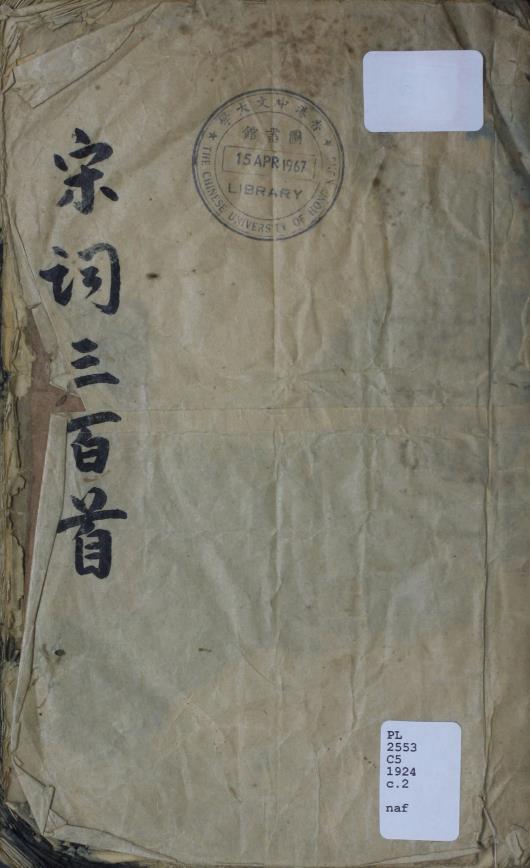 宋词三百首
香港中文大學
圖書館
15 APR 1967
LIBRARY
THE CHINESE UNIVERSITY OF HONG
PL
2553
C5
1924
c.2
naf